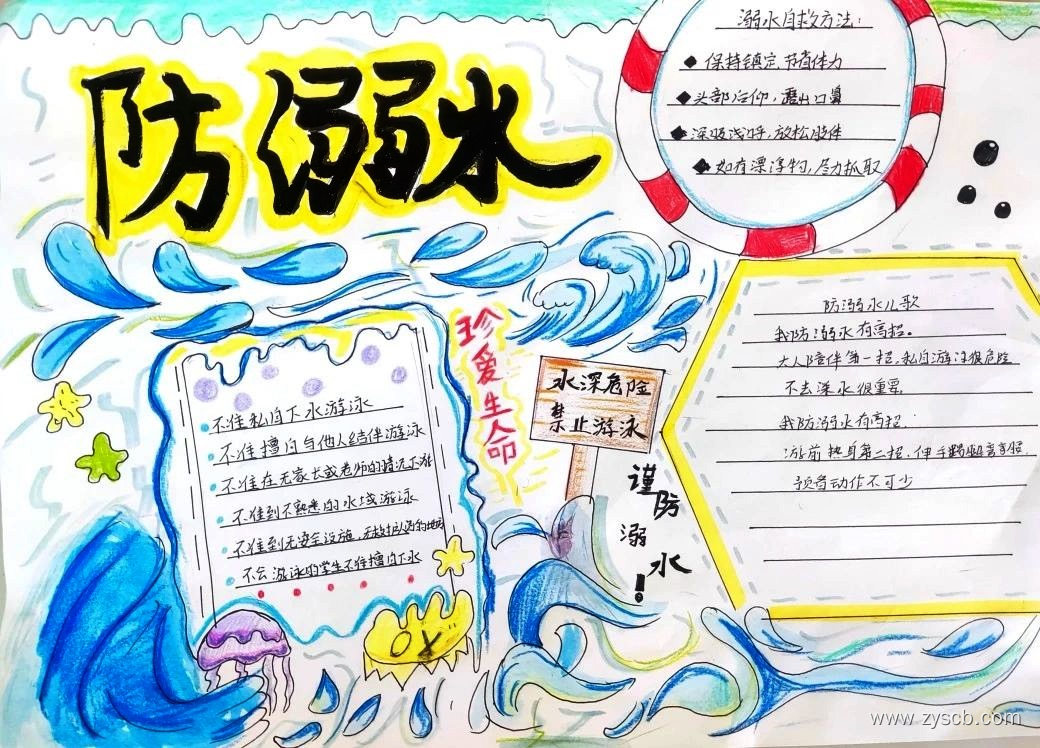 防溺水
溺水自救方法：
保持镇定，节省体力
头部后仰，露出口鼻
深吸浅呼，放松肢体
如有漂浮物，尽力抓取
珍爱生命
水深危险
禁止游泳
谨防溺水！
不准私自下水游泳
不准擅自与他人结伴游泳
不准在无家长或老师的情况下游
不准到不熟悉的水域游泳
不准到无安全设施，无救护人员的地方
不会游泳的学生不准擅自下水
防溺水儿歌
我防溺水有高招。
大人陪伴第一招，私自游泳很危险
不去深水很重要
我防溺水有高招：
游前热身第二招，伸手踢腿
预备动作不可少
www.zyscb.com